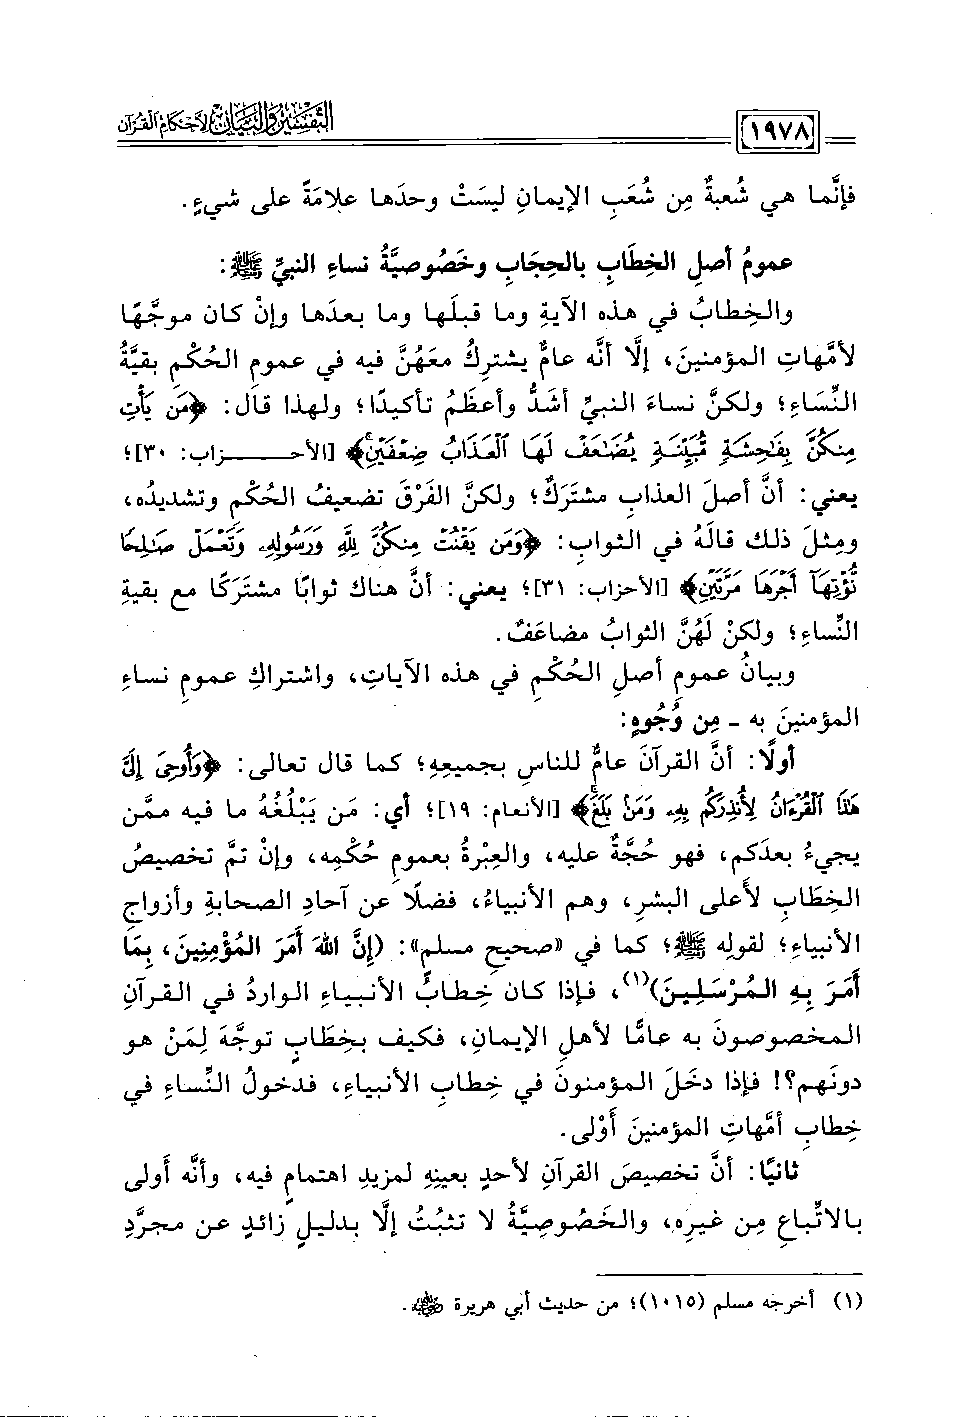 [١٩٧٨]
التفسير والبيان لأحكام القرآن
فإنَّما هي شُعبةٌ مِن شُعَبِ الإيمانِ ليسَتْ وحدَها علامةً على شيءٍ.
عمومُ أصلِ الخِطَابِ بالحِجَابِ وخَصُوصيَّةُ نساءِ النبيِّ ﷺ:
والخِطابُ في هذه الآيةِ وما قبلَها وما بعدَها وإنْ كان موجَّهًا
لأمَّهاتِ المؤمنينَ، إلَّا أنَّه عامٌّ يشترِكُ معَهُنَّ فيه في عمومِ الحُكْمِ بقيَّةُ
النِّسَاءِ؛ ولكنَّ نساءَ النبيِّ أشَدُّ وأعظَمُ تأكيدًا؛ ولهذا قال: ﴿مَن يَأْتِ
مِنكُنَّ بِفَٰحِشَةٖ مُّبَيِّنَةٖ يُضَٰعَفْ لَهَا ٱلْعَذَابُ ضِعْفَيْنِۚ﴾ [الأحـــزاب: ٣٠]؛
يعني: أنَّ أصلَ العذابِ مشترَكٌ؛ ولكنَّ الفَرْقَ تضعيفُ الحُكْمِ وتشديدُه،
ومِثلَ ذلك قالَهُ في الثوابِ: ﴿وَمَن يَقْنُتْ مِنكُنَّ لِلَّهِ وَرَسُولِهِۦ وَتَعْمَلْ صَٰلِحٗا
نُّؤْتِهَآ أَجْرَهَا مَرَّتَيْنِ﴾ [الأحزاب: ٣١]؛ يعني: أنَّ هناك ثوابًا مشترَكًا مع بقيةِ
النِّساءِ؛ ولكنْ لَهُنَّ الثوابُ مضاعَفٌ.
وبيانُ عمومِ أصلِ الحُكْمِ في هذه الآياتِ، واشتراكِ عمومِ نساءِ
المؤمنينَ به ـ مِن وُجُوهٍ:
أولًا: أنَّ القرآنَ عامٌّ للناسِ بجميعِهِ؛ كما قال تعالى: ﴿وَأُوحِيَ إِلَيَّ
هَٰذَا ٱلْقُرْءَانُ لِأُنذِرَكُم بِهِۦ وَمَنۢ بَلَغَۚ﴾ [الأنعام: ١٩]؛ أي: مَن يَبْلُغُهُ ما فيه ممَّن
يجيءُ بعدَكم، فهو حُجَّةٌ عليه، والعِبْرةُ بعمومِ حُكْمِه، وإنْ تمَّ تخصيصُ
الخِطَابِ لأعلى البشرِ، وهم الأنبياءُ، فضلًا عن آحادِ الصحابةِ وأزواجِ
الأنبياءِ؛ لقولِه ﷺ؛ كما في «صحيحِ مسلمٍ»: (إِنَّ اللهَ أَمَرَ المُؤْمِنِينَ، بِمَا
أَمَرَ بِهِ المُرْسَلِينَ)(١)، فإذا كان خِطابُ الأنبياءِ الواردُ في القرآنِ
المخصوصونَ به عامًّا لأهلِ الإيمانِ، فكيف بخِطَابٍ توجَّهَ لِمَنْ هو
دونَهم؟! فإذا دخَلَ المؤمنونَ في خِطابِ الأنبياءِ، فدخولُ النِّساءِ في
خِطابِ أمَّهاتِ المؤمنينَ أَوْلى.
ثانيًا: أنَّ تخصيصَ القرآنِ لأحدٍ بعينِهِ لمزيدِ اهتمامٍ فيه، وأنَّه أَولى
بالاتِّباعِ مِن غيرِه، والخَصُوصِيَّةُ لا تثبُتُ إلَّا بدليلٍ زائدٍ عن مجرَّدِ
(١) أخرجه مسلم (١٠١٥)؛ من حديث أبي هريرة ﷺ.